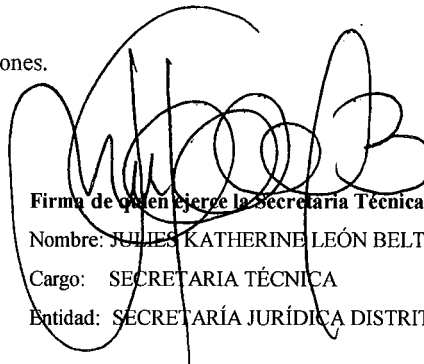 ones.
Firma de quien ejerce la Secretaría Técnica
Nombre: JULIES KATHERINE LEÓN BELT
Cargo: SECRETARIA TÉCNICA
Entidad: SECRETARÍA JURÍDICA DISTRIT